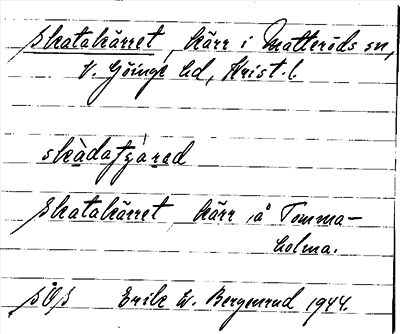 Skatakärret, kärr i Matteröds sn,
V. Göinge hd, Krist. l.
Skatakärret kärr å Tomma-
holma.
SOS Erik W. Bergenrud 1944.